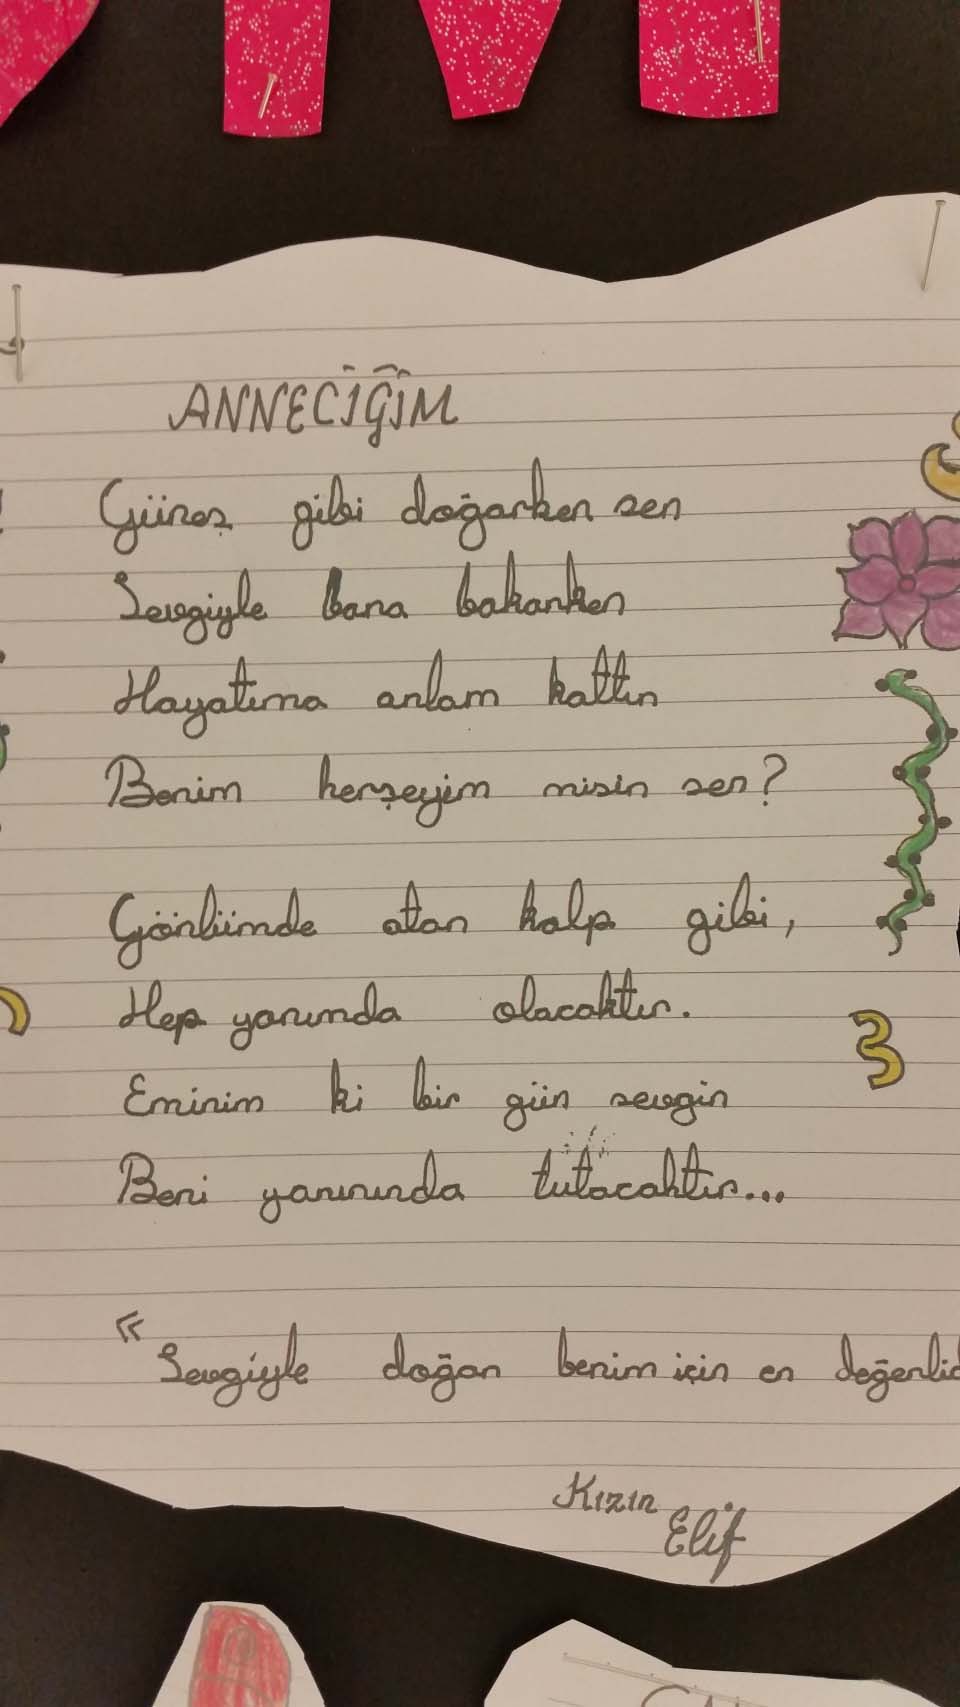 ANNECİĞİM
Güneş gibi doğarken sen
Sevgiyle bana bakarken
Hayatıma anlam kattın
Benim herşeyim misin sen?
Gönlümde atan kalp gibi,
Hep yanımda olacaktır.
Eminim ki bir gün sevgin
Beni yanınında tutacaktır...
« Sevgiyle doğan benim için en değerlid
Kızın
Elif